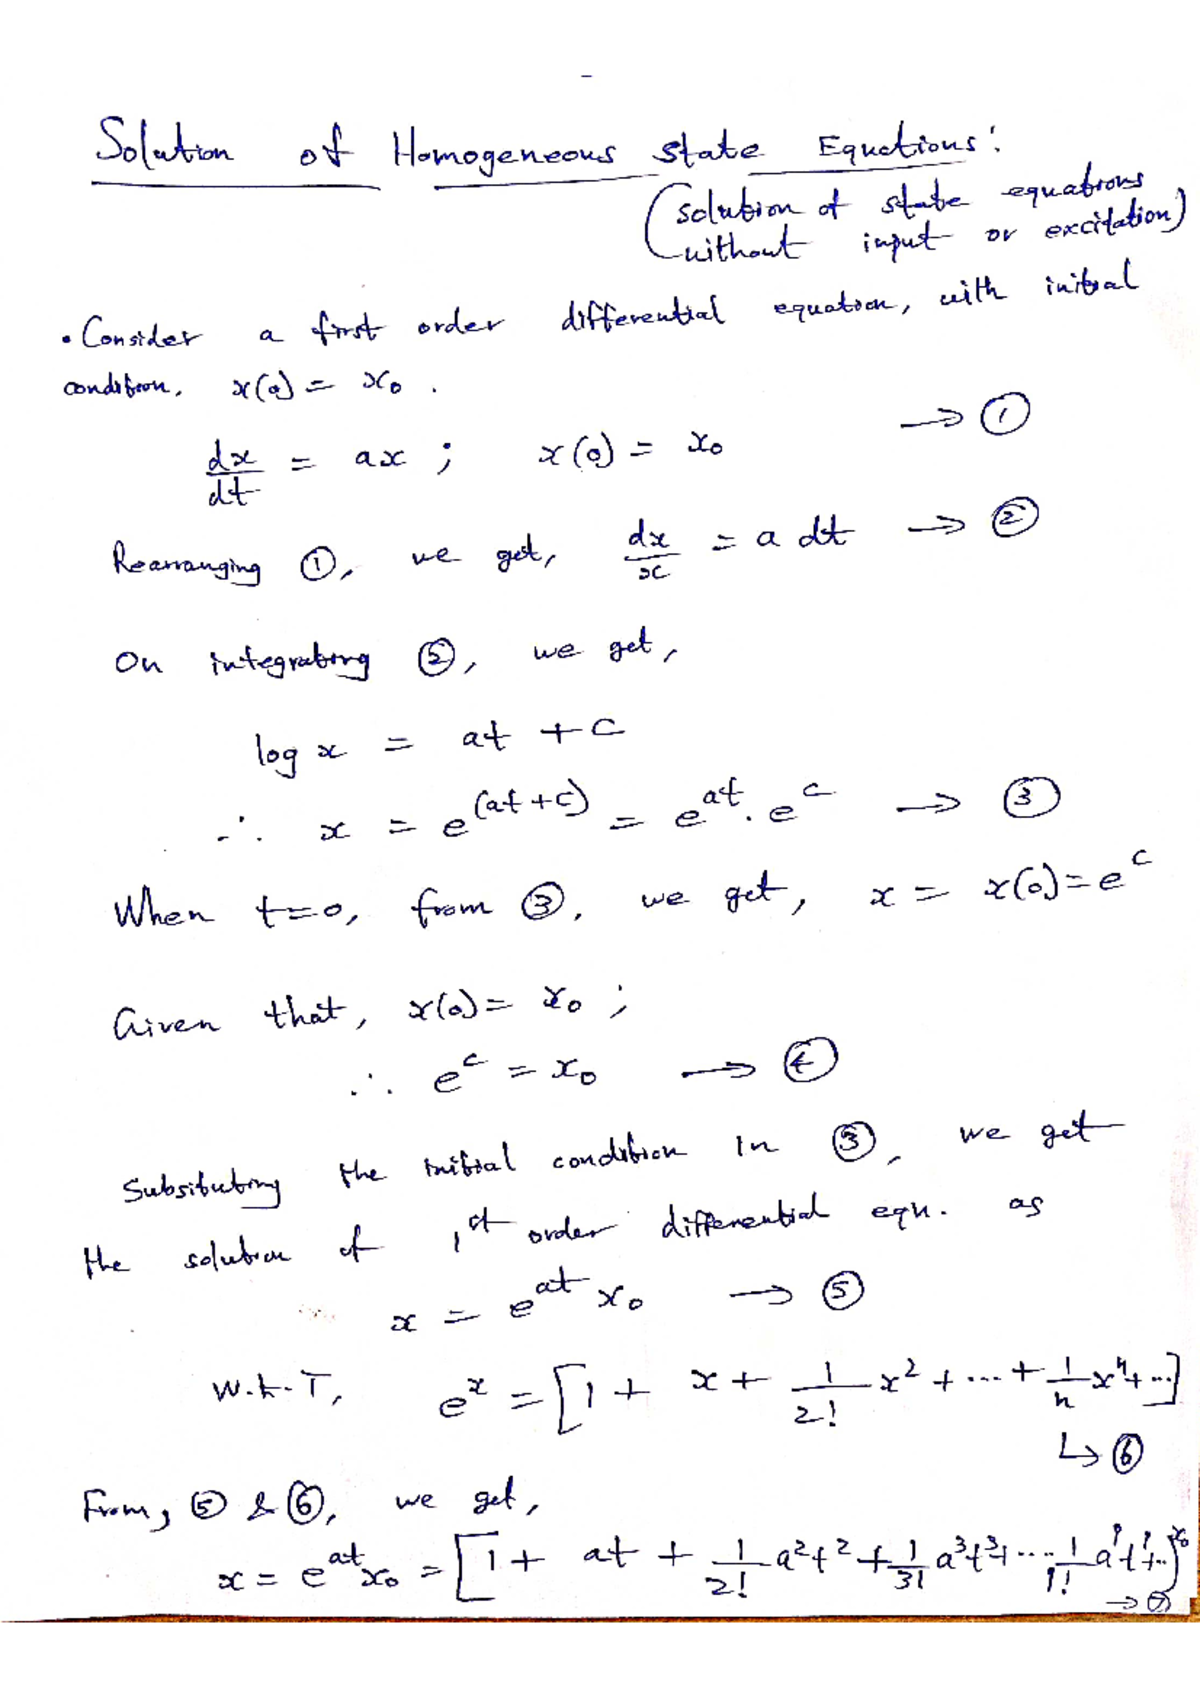 Solution of Homogeneous state Equations:
(solution of state equations
without input or excitation)
• Consider a first order differential equation, with initial
condition, x(0) = x₀.
dx/dt = ax ; x(0) = x₀ → ①
Rearranging ①, we get, dx/x = a dt → ②
On integrating ②, we get,
log x = at + c
∴ x = e^(at+c) = e^at . e^c → ③
When t=0, from ③, we get, x = x(0) = e^c
Given that, x(0) = x₀ ;
∴ e^c = x₀ → ④
Subsituting the initial condition in ③, we get
the solution of 1st order differential eqn. as
x = e^at x₀ → ⑤
W.k.T, e^x = [1 + x + 1/2! x² + ... + 1/n x^n + ...]
↳ ⑥
From, ⑤ & ⑥, we get,
x = e^at x₀ = [1 + at + 1/2! a²t² + 1/3! a³t³ + ... 1/i! a^i t^i + ..] x₀
→ ⑦